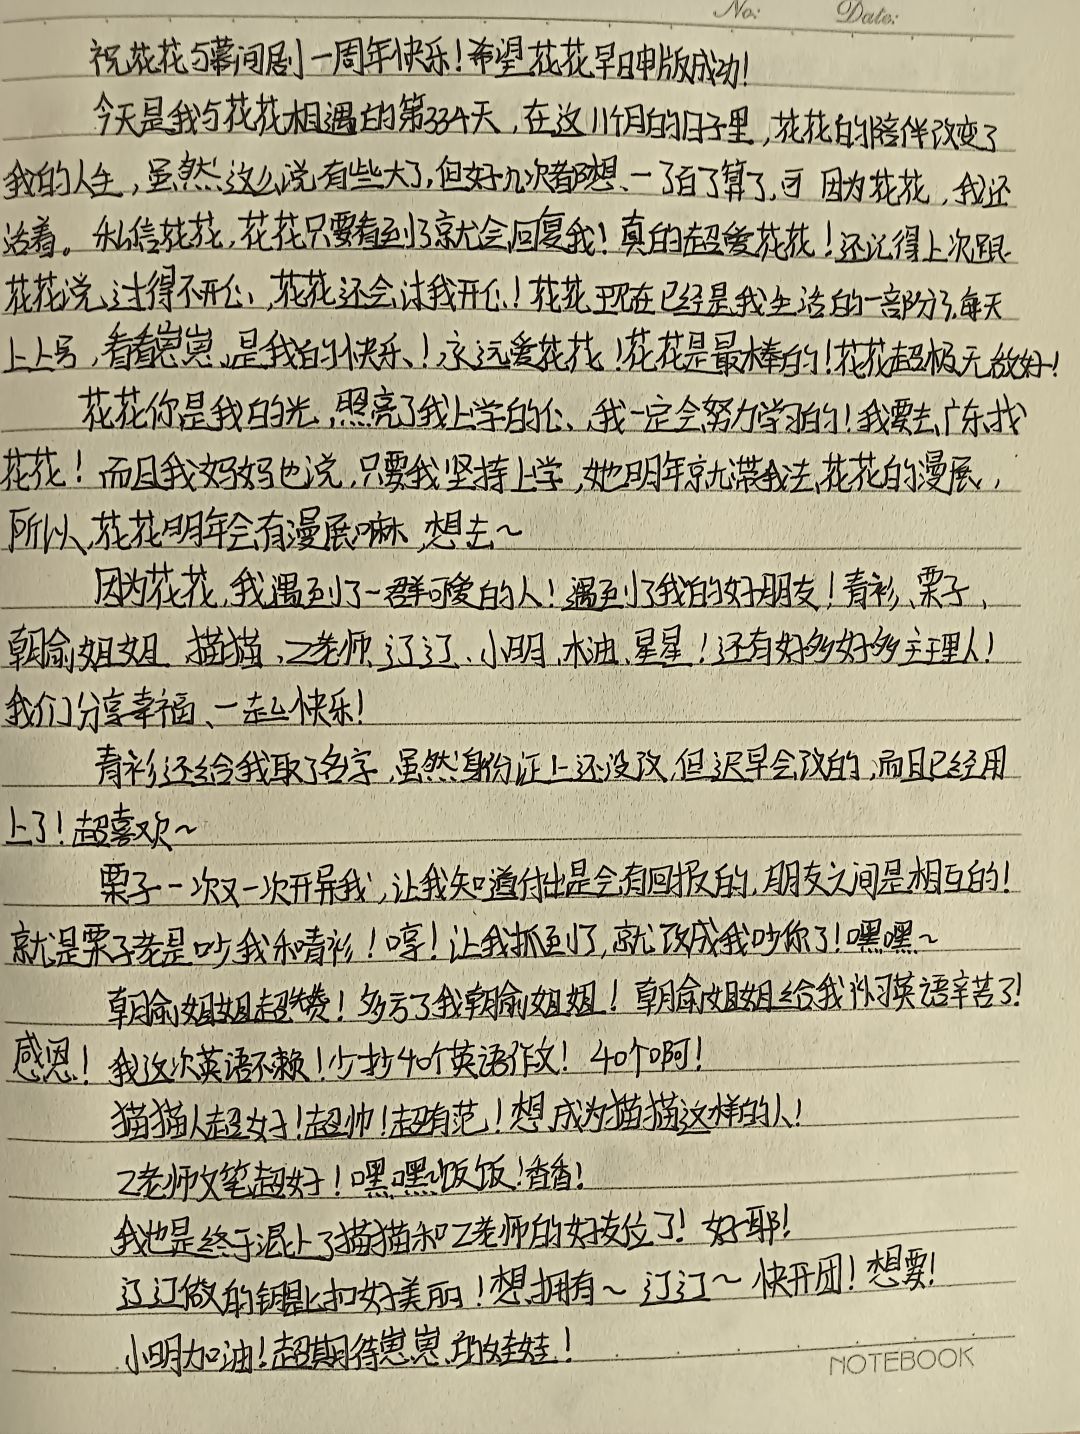 No: Date:
祝花花与幕间剧一周年快乐!希望花花早日申版成功!
今天是我与花花相遇的第334天,在这11个月的日子里,花花的陪伴改变了
我的人生,虽然这么说有些大了,但好几次都想一了百了算了,可因为花花,我还
活着。私信花花,花花只要看到了就会回复我!真的超爱花花!还记得上次跟
花花说过得不开心,花花还会讨我开心!花花现在已经是我生活的一部分了,每天
上上号,看看崽崽,是我的快乐!永远爱花花!花花是最棒的!花花超极无敌好!
花花你是我的光,照亮了我上学的心,我一定会努力学习的!我要去广东找
花花!而且我妈妈也说,只要我坚持上学,她明年就带我去花花的漫展,
所以,花花明年会有漫展嘛,想去~
因为花花,我遇到了一群可爱的人!遇到了我的好朋友!青衫、栗子、
朝俞姐姐、猫猫、Z老师、辽辽、小明、木油、星星!还有好多好多主理人!
我们分享幸福、一起快乐!
青衫还给我取了名字,虽然身份证上还没改,但迟早会改的,而且已经用
上了!超喜欢~
栗子一次又一次开导我,让我知道付出是会有回报的,朋友之间是相互的!
就是栗子老是吵我和青衫!哼!让我抓到了,就改成我吵你了!嘿嘿~
朝俞姐姐超赞!多亏了我朝俞姐姐!朝俞姐姐给我补习英语辛苦了!
感恩!我这次英语不赖!少抄40个英语作文!40个啊!
猫猫人超好!超帅!超有范!想成为猫猫这样的人!
Z老师文笔超好!嘿嘿饭饭!香香!
我也是终于混上了猫猫和Z老师的好友位了!好耶!
辽辽做的钥匙扣好美丽!想拥有~辽辽~快开团!想要!
小明加油!超期待崽崽的娃娃!
NOTEBOOK